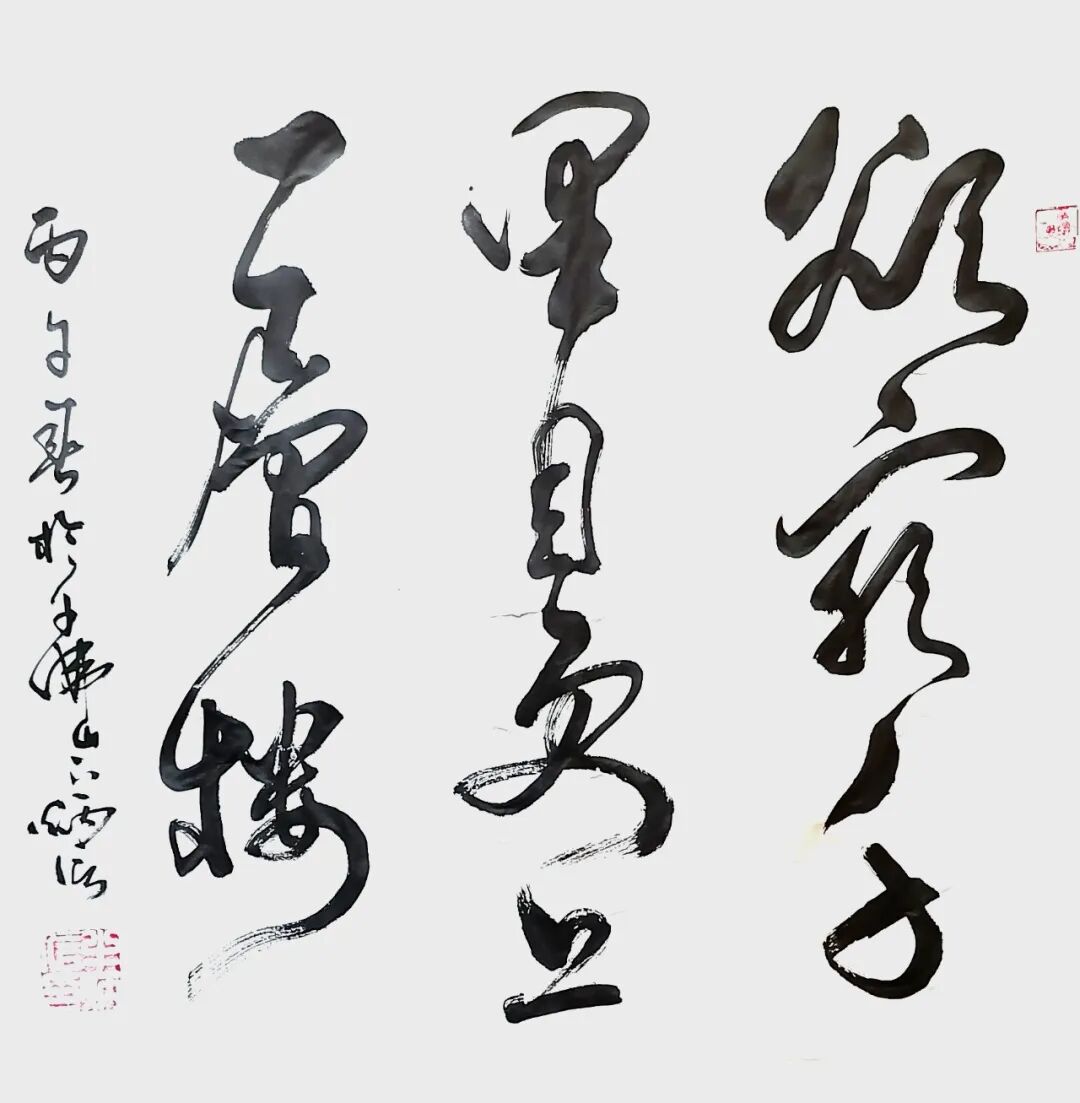 欲穷千
里目更上
一层楼
丙午春於佛山